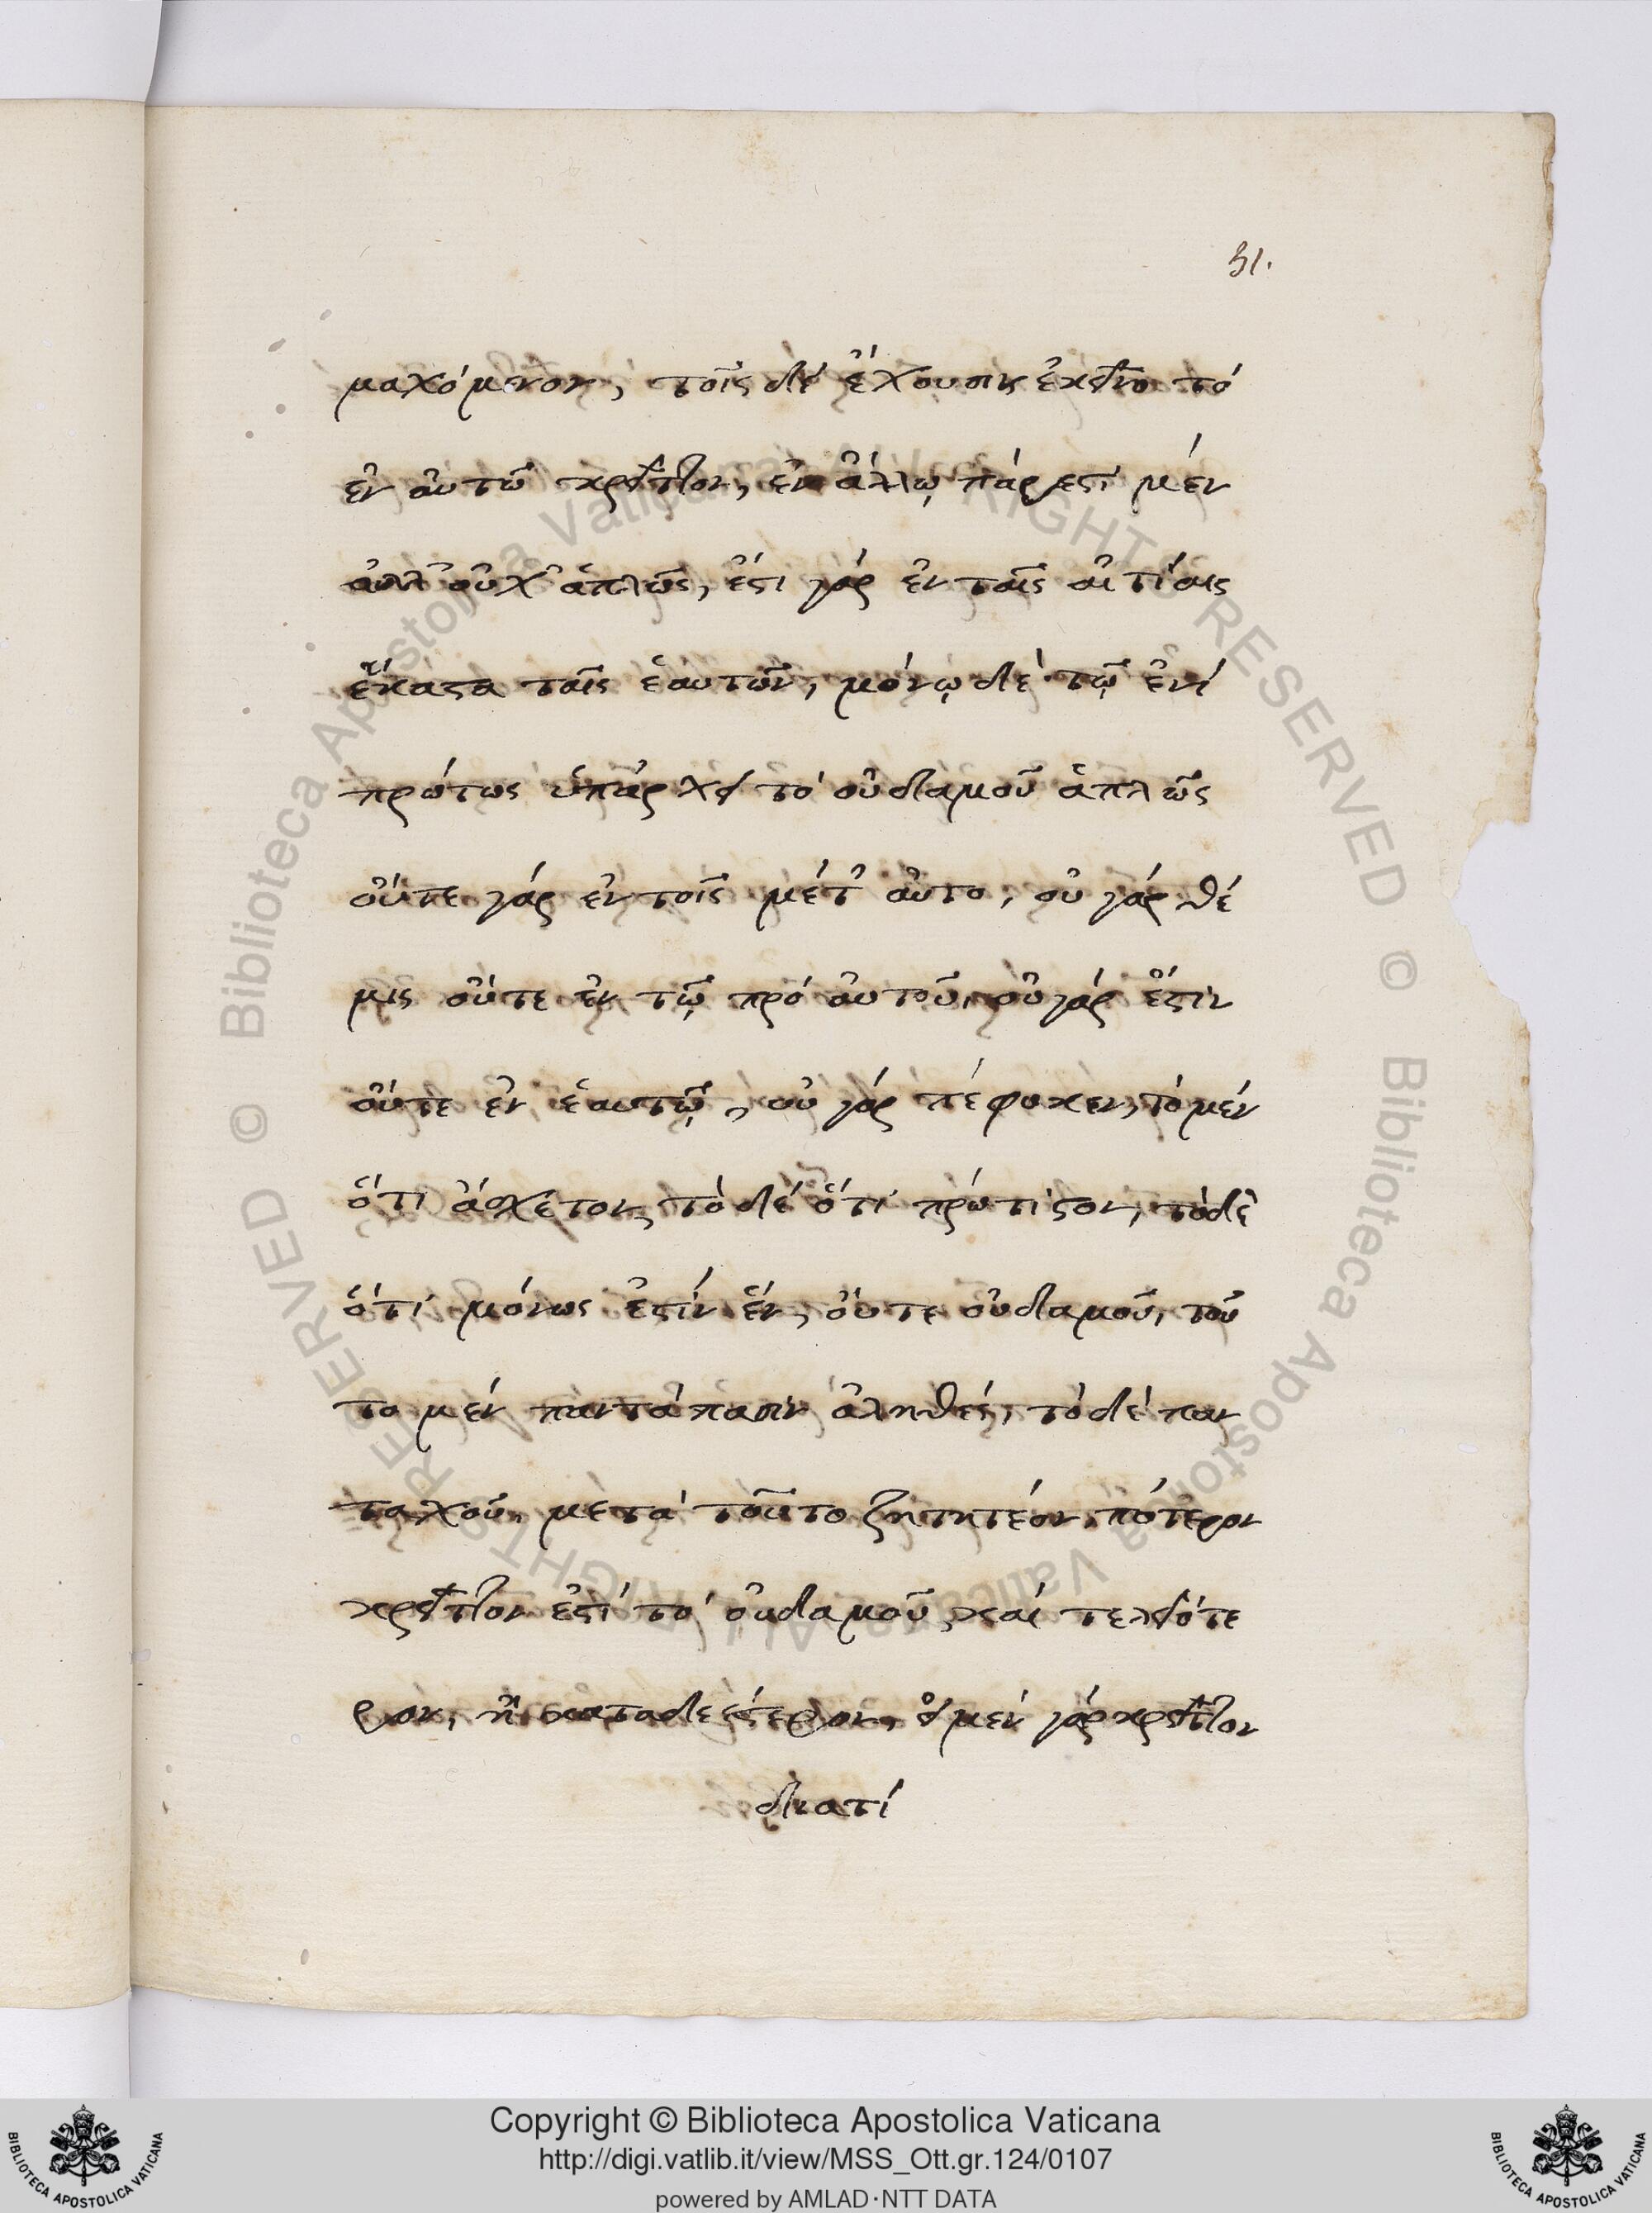 51.
μαχόμενον, τοῖς δὲ ἔχουσιν ἐκεῖνο τὸ
ἐν αὐτῶ κρεῖττον, ἐν ἄλλῳ πάρεστι μὲν
ἀλλ' οὐχ' ἁπλῶς, ἔστι γὰρ ἐν ταῖς αἰτίαις
ἕκαστα ταῖς ἑαυτῶν, μόνῳ δὲ τῷ ἑνὶ
πρώτως ὑπάρχει τὸ οὐδαμοῦ ἁπλῶς
οὔτε γὰρ ἐν τοῖς μέτ' αὐτο, οὐ γὰρ θέ
μις οὔτε ἐν τῷ πρὸ αὐτοῦ, οὐ γὰρ ἔστιν
οὔτε ἐν ἑαυτῷ, οὐ γὰρ πέφυκεν, τὸ μὲν
ὅτι ἄσχετον, τὸ δὲ ὅτι πρώτιστον, τὸ δὲ
ὅτι μόνως ἐστὶν ἕν, οὔτε οὐδαμοῦ, τοῦ
το μὲν παντάπασιν ἀληθές, τὸ δὲ παν
ταχοῦ, μετὰ τοῦτο ζητητέον, πότερον
κρεῖττον ἐστὶ τὸ οὐδαμοῦ καὶ τελειότε
ρον, ἢ καταδεέστερον, εἰ μὲν γὰρ κρεῖττον
διατί
Copyright © Biblioteca Apostolica Vaticana
http://digi.vatlib.it/view/MSS_Ott.gr.124/0107
powered by AMLAD·NTT DATA
BIBLIOTECA APOSTOLICA VATICANA
BIBLIOTECA APOSTOLICA VATICANA
© Biblioteca Apostolica Vaticana ALL RIGHTS RESERVED © Biblioteca Apostolica Vaticana ALL RIGHTS RESERVED